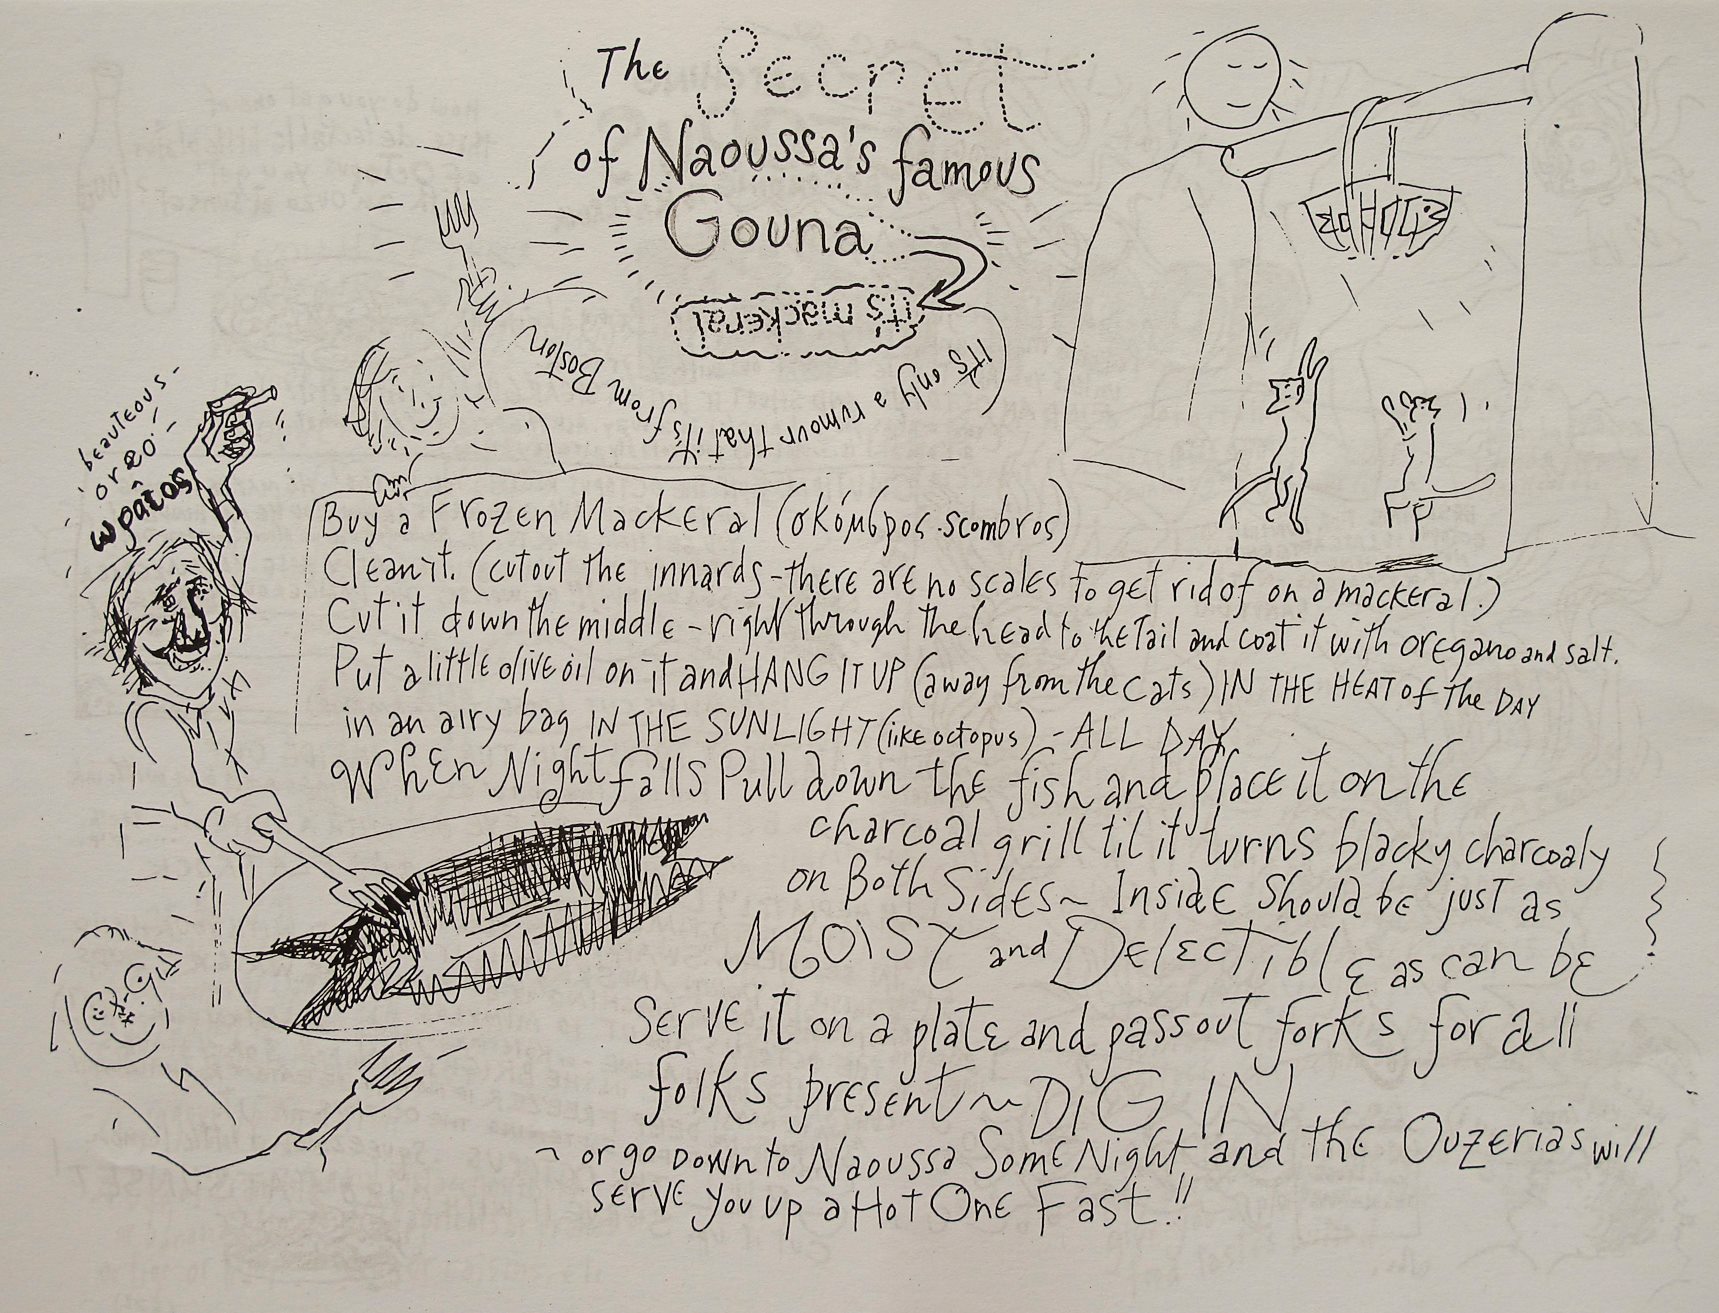 The Secret
of Naoussa's famous
Gouna
it's mackeral
it's only a rumour that it's from Boston
beauteous-
or
ωραίος
Buy a Frozen Mackeral (σκόμβρος-scombros)
Clean it. (cut out the innards-there are no scales to get rid of on a mackeral.)
Cut it down the middle - right through the head to the Tail and coat it with oregano and salt.
Put a little olive oil on it and HANG IT UP (away from the cats) IN THE HEAT of the DAY
in an airy bag IN THE SUNLIGHT (like octopus) - ALL DAY
When Night falls Pull down the fish and place it on the
charcoal grill til it turns blacky charcoaly
on Both Sides~ Inside Should be just as
MOIST and Delectible as can be
Serve it on a plate and pass out forks for all
folks present ~ DIG IN
~ or go down to Naoussa Some Night and the Ouzerias will
serve you up a Hot One Fast.!!